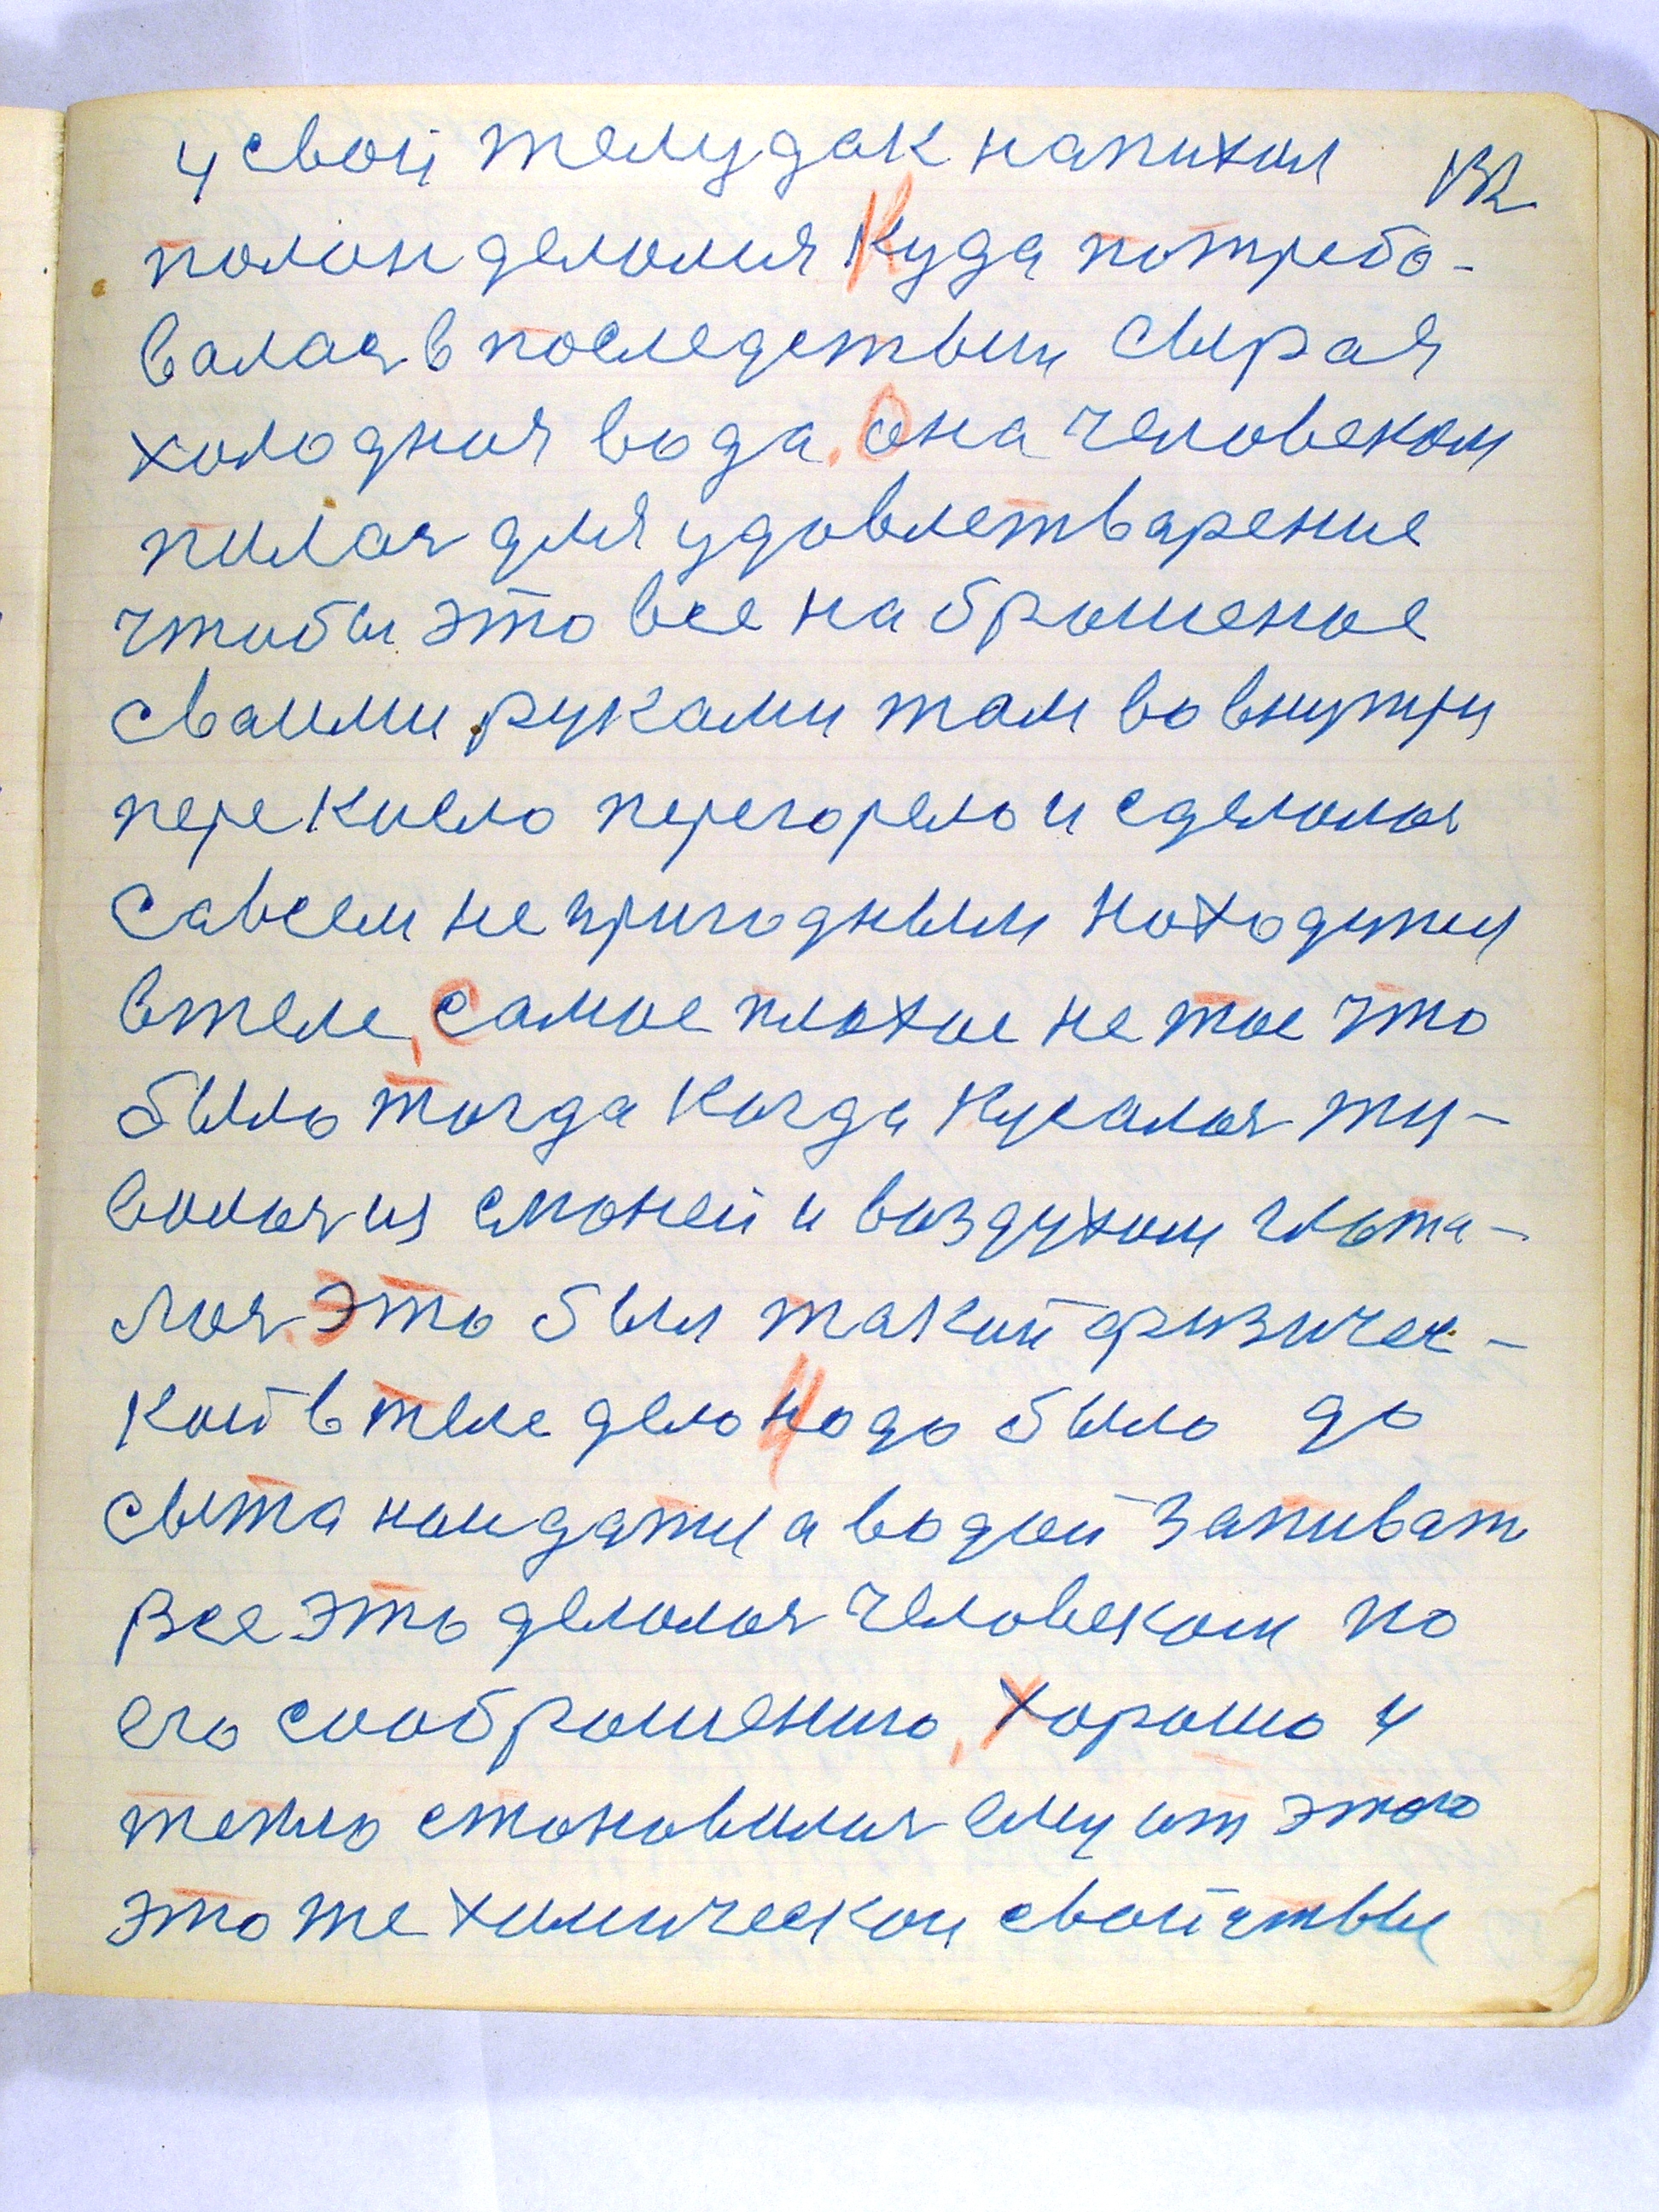 и свой желудак напихал
полон делался Куда потребо-
валась в последствии сырая
холодная вода. Она человеком
пилась для удовлетварение
чтобы это все на брошеное
сваими руками там во внутри
перекисло перегорело и сделалось
савсем не пригодным находится
в теле, Самое плохое не тое что
было тогда когда кусалось жу-
валося слюней и воздухом глота-
лось. Это был такий физичес-
кой в теле дело Надо было до
сыта наидатся а водой запиват
Все это делалось человеком по
его соображению, Хорошо и
тепло становилось ему от этого
это же химическои свойствы